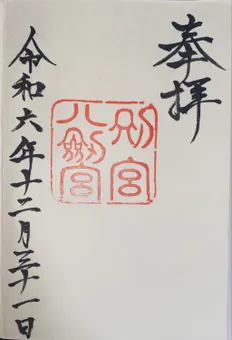 奉拝
別宮
八剱宮
令和六年十二月三十一日